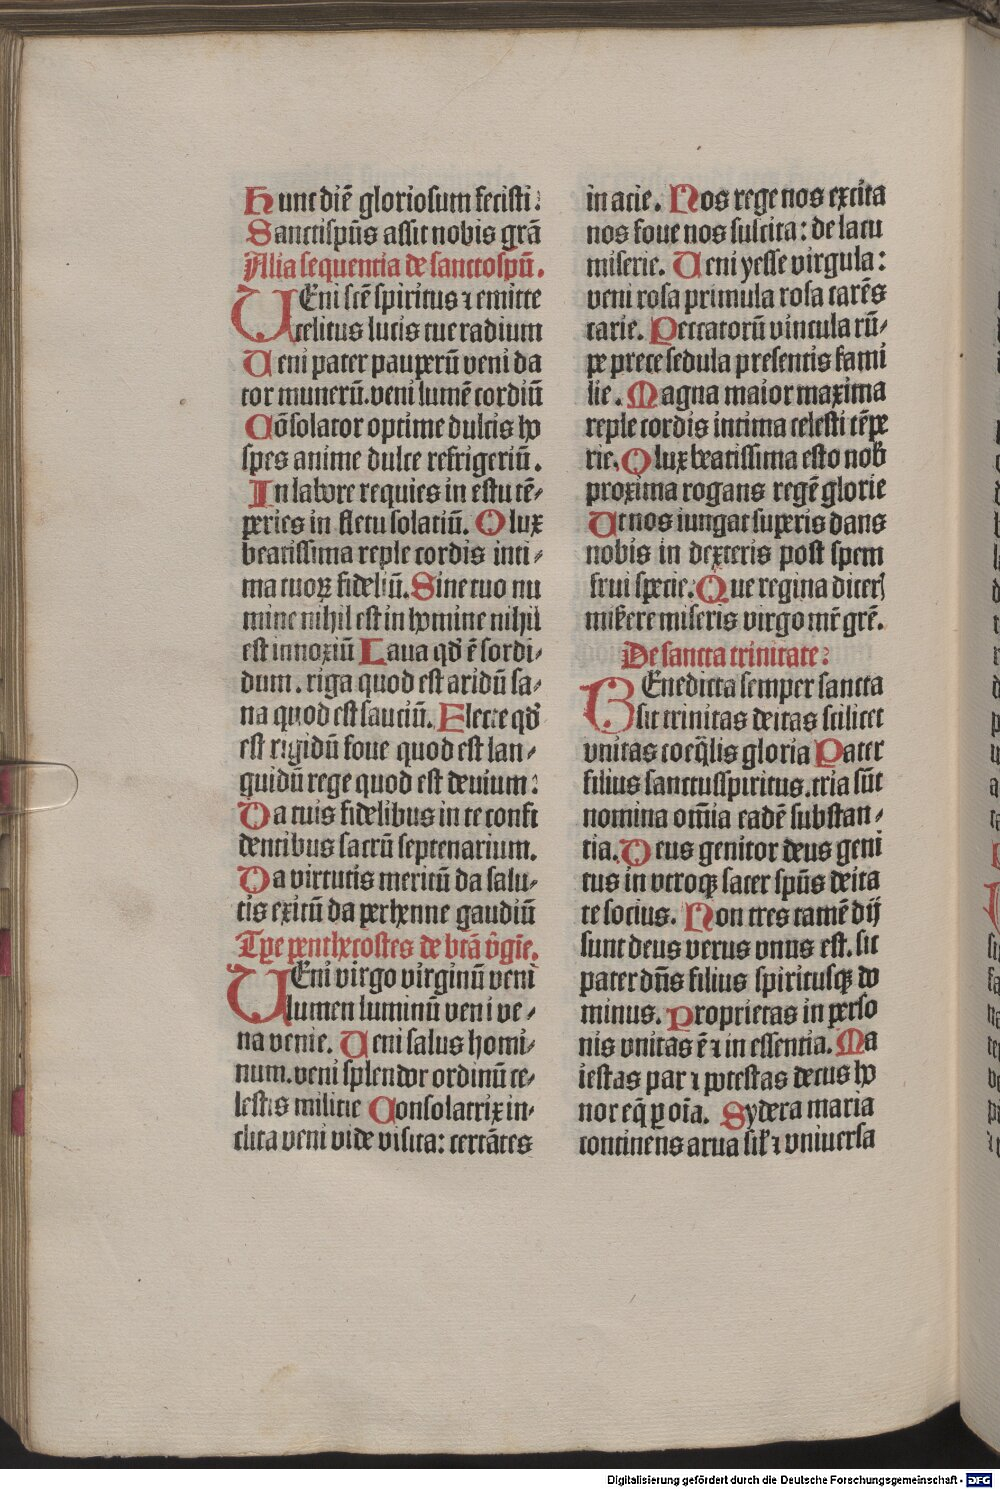 Hunc diē gloriosum fecisti:
Sanctispūs assit nobis grā
Alia sequentia de sanctospū.
VEni scē spiritus ⁊ emitte
celitus lucis tue radium
Veni pater pauperū veni da
tor munerū.veni lumē cordiū
Cōsolator optime dulcis ho
spes anime dulce refrigeriū.
In labore requies in estu tē⸗
peries in fletu solatiū. O lux
beatissima reple cordis inti⸗
ma tuoꝝ fideliū.Sine tuo nu
mine nihil est in homine nihil
est innoxiū Laua qđ ē sordi⸗
dum.riga quod est aridū sa⸗
na quod est sauciū. Flecte qđ
est rigidū foue quod est lan⸗
guidū rege quod est deuium:
Da tuis fidelibus in te confi
dentibus sacrū septenarium.
Da virtutis meritū da salu⸗
tis exitū da perhenne gaudiū
Tpe penthecostes de btā v̄gīe.
VEni virgo virginū veni
lumen luminū veni ve⸗
na venie. Veni salus homi⸗
num.veni splendor ordinū ce⸗
lestis militie Consolatrix in⸗
clita veni vide visita: certātes
in acie. Nos rege nos excita
nos foue nos suscita: de lacu
miserie. Veni yesse virgula:
veni rosa primula rosa carēs
carie. Peccatorū vincula rū⸗
pe prece sedula presentis fami
lie. Magna maior maxima
reple cordis intima celesti tēpe
rie. O lux beatissima esto nob̄
proxima rogans regē glorie
Ut nos iungat superis dans
nobis in dexteris post spem
frui specie. Que regina diceris
mis̄ere miseris virgo mr̄ grē.
De sancta trinitate:
BEnedicta semper sancta
sit trinitas deitas scilicet
vnitas coeq̄lis gloria Pater
filius sanctusspiritus.tria sūt
nomina om̄ia eadē substan⸗
tia. Deus genitor deus geni
tus in vtroqꝫ sacer spūs deita
te socius. Non tres tamē dij
sunt deus verus vnus est. sit
pater dn̄s filius spiritusqꝫ do
minus. Proprietas in perso
nis vnitas ē ⁊ in essentia. Ma
iestas par ⁊ potestas decus ho
nor eq̄ ꝑ oīa. Sydera maria
continens arua sil̄ ⁊ vniuersa
Digitalisierung gefördert durch die Deutsche Forschungsgemeinschaft - DFG